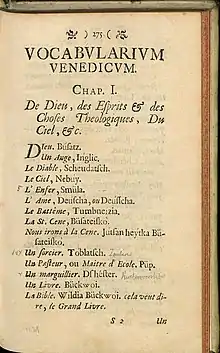 ) 275 (
VOCABVLARIVM
VENEDICVM.
CHAP. I.
De Dieu, des Esprits & des
Choses Theologiques, Du
Ciel, &c.
Dieu. Büsatz.
Un Auge, Inglic.
Le Diable, Scheudatsch.
Le Ciel, Nebuy.
L' Enfer, Smüla.
L' Ame, Deüscha, ou Deusscha.
Le Battême, Tumbnezia.
La St. Cene, Büsateisko.
Nous irons à la Cene. Jutsan heytka Bü-
sateiskó.
Un sorcier. Toblatsch.
Un Pasteur, ou Maitre d'Ecole. Püp.
Un marguillier. Dshéster.
Un Livre. Bückwoi.
La Bible. Wildia Bückwoi. cela vent di-
re, le Grand Livre.
S 2 Un